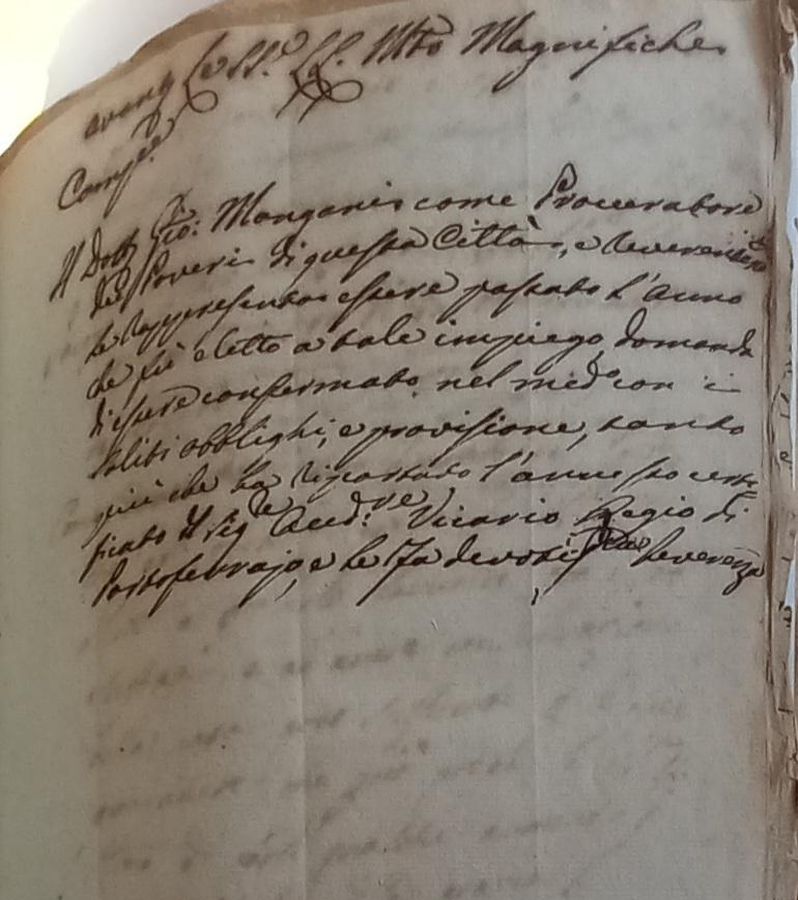 avanti Le SS.e LL. Mto Magnifiche
Comp
Il Dott: Gio: Manganis come Procuratore
dei Poveri di questa Città, e reverentem
Le rappresenta essere passato l'Anno
che fù eletto a tale impiego, domanda
di essere confermato nel medo con i
soliti obblighi, e provisione, tanto
più che ha riportato l'annesso certi
ficato Il Sig Aud:re Vicario Regio di
Portoferrajo, e Le fa devotis reverenza